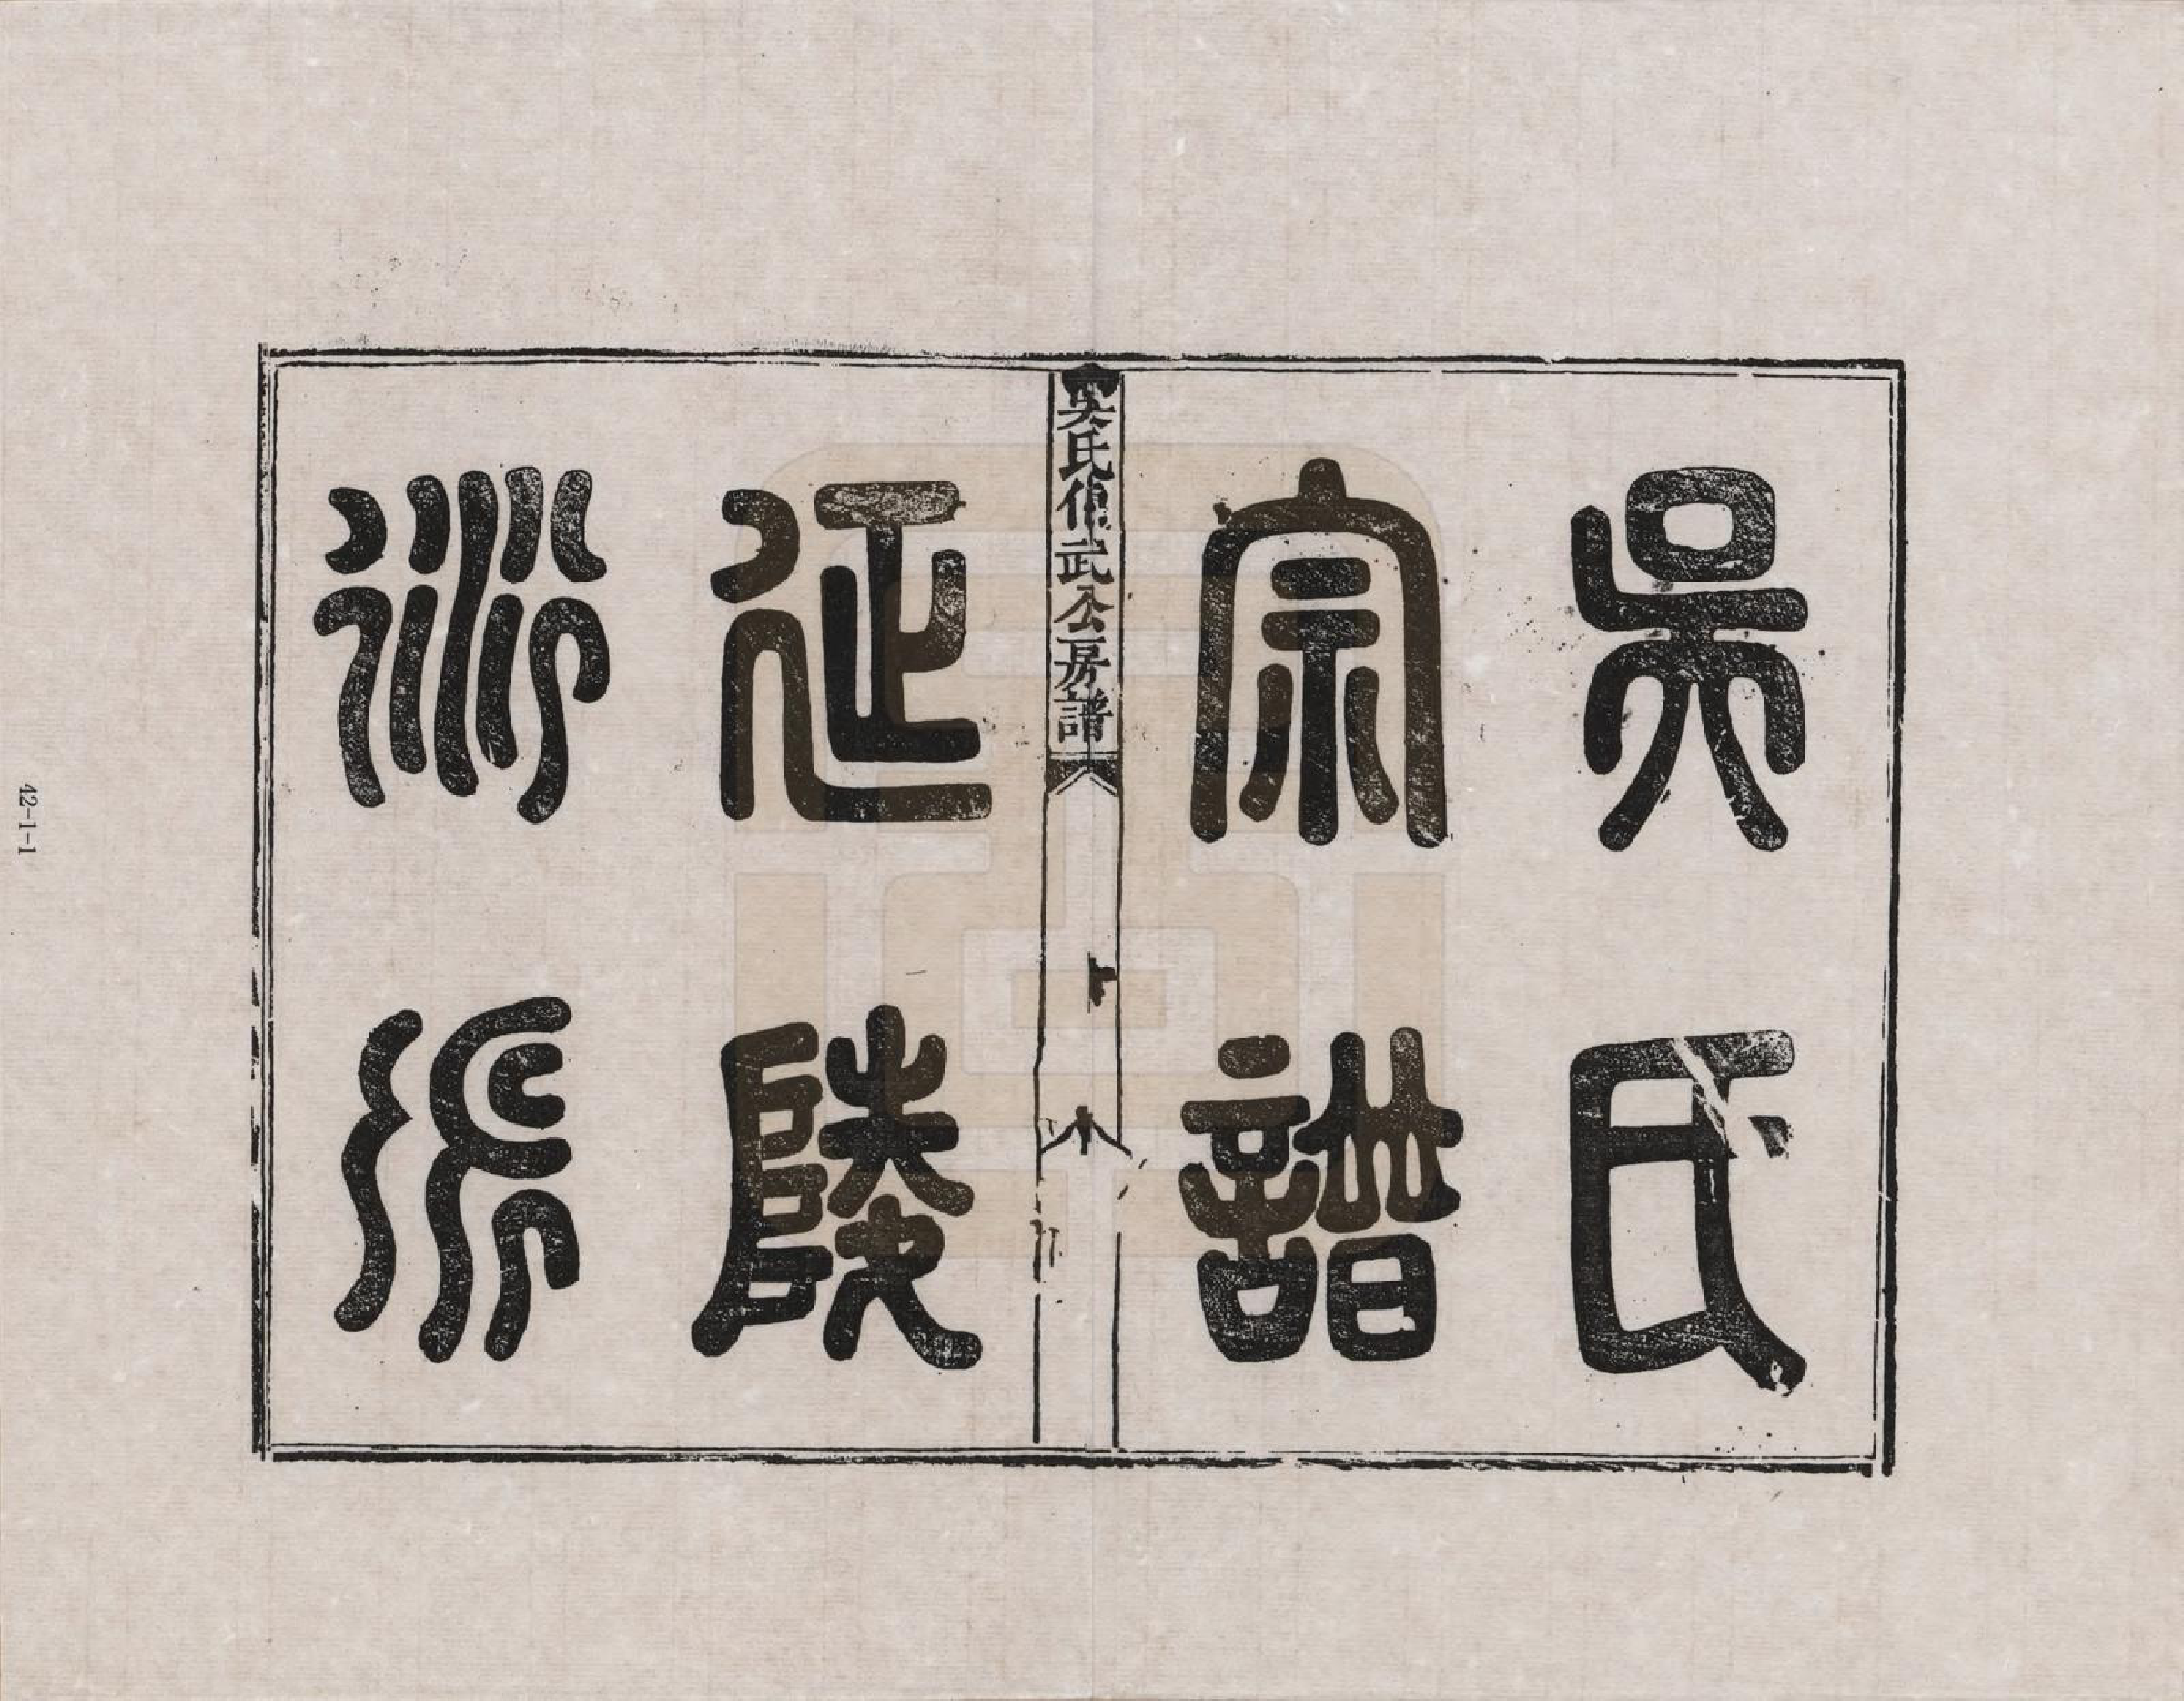 吳氏
宗譜
吳氏武公房譜
延陵
衍派
42-1-1